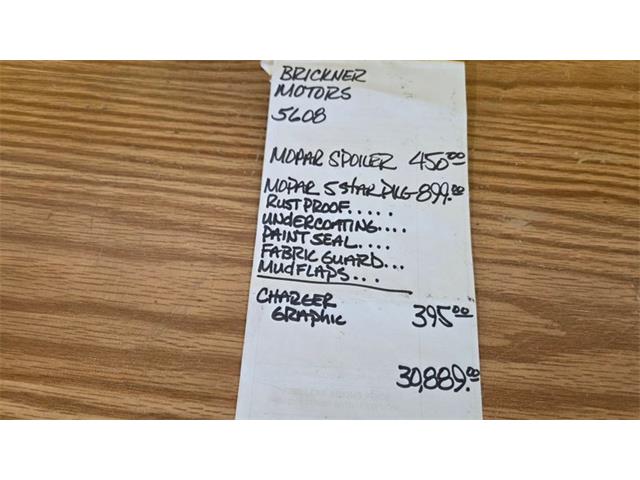 BRICKNER
MOTORS
5608
MOPAR SPOILER 450.00
MOPAR 5 STAR PKG-899.00
RUSTPROOF.....
UNDERCOATING....
PAINT SEAL....
FABRIC GUARD...
MUDFLAPS...
CHARGER
GRAPHIC 395.00
30,889.00